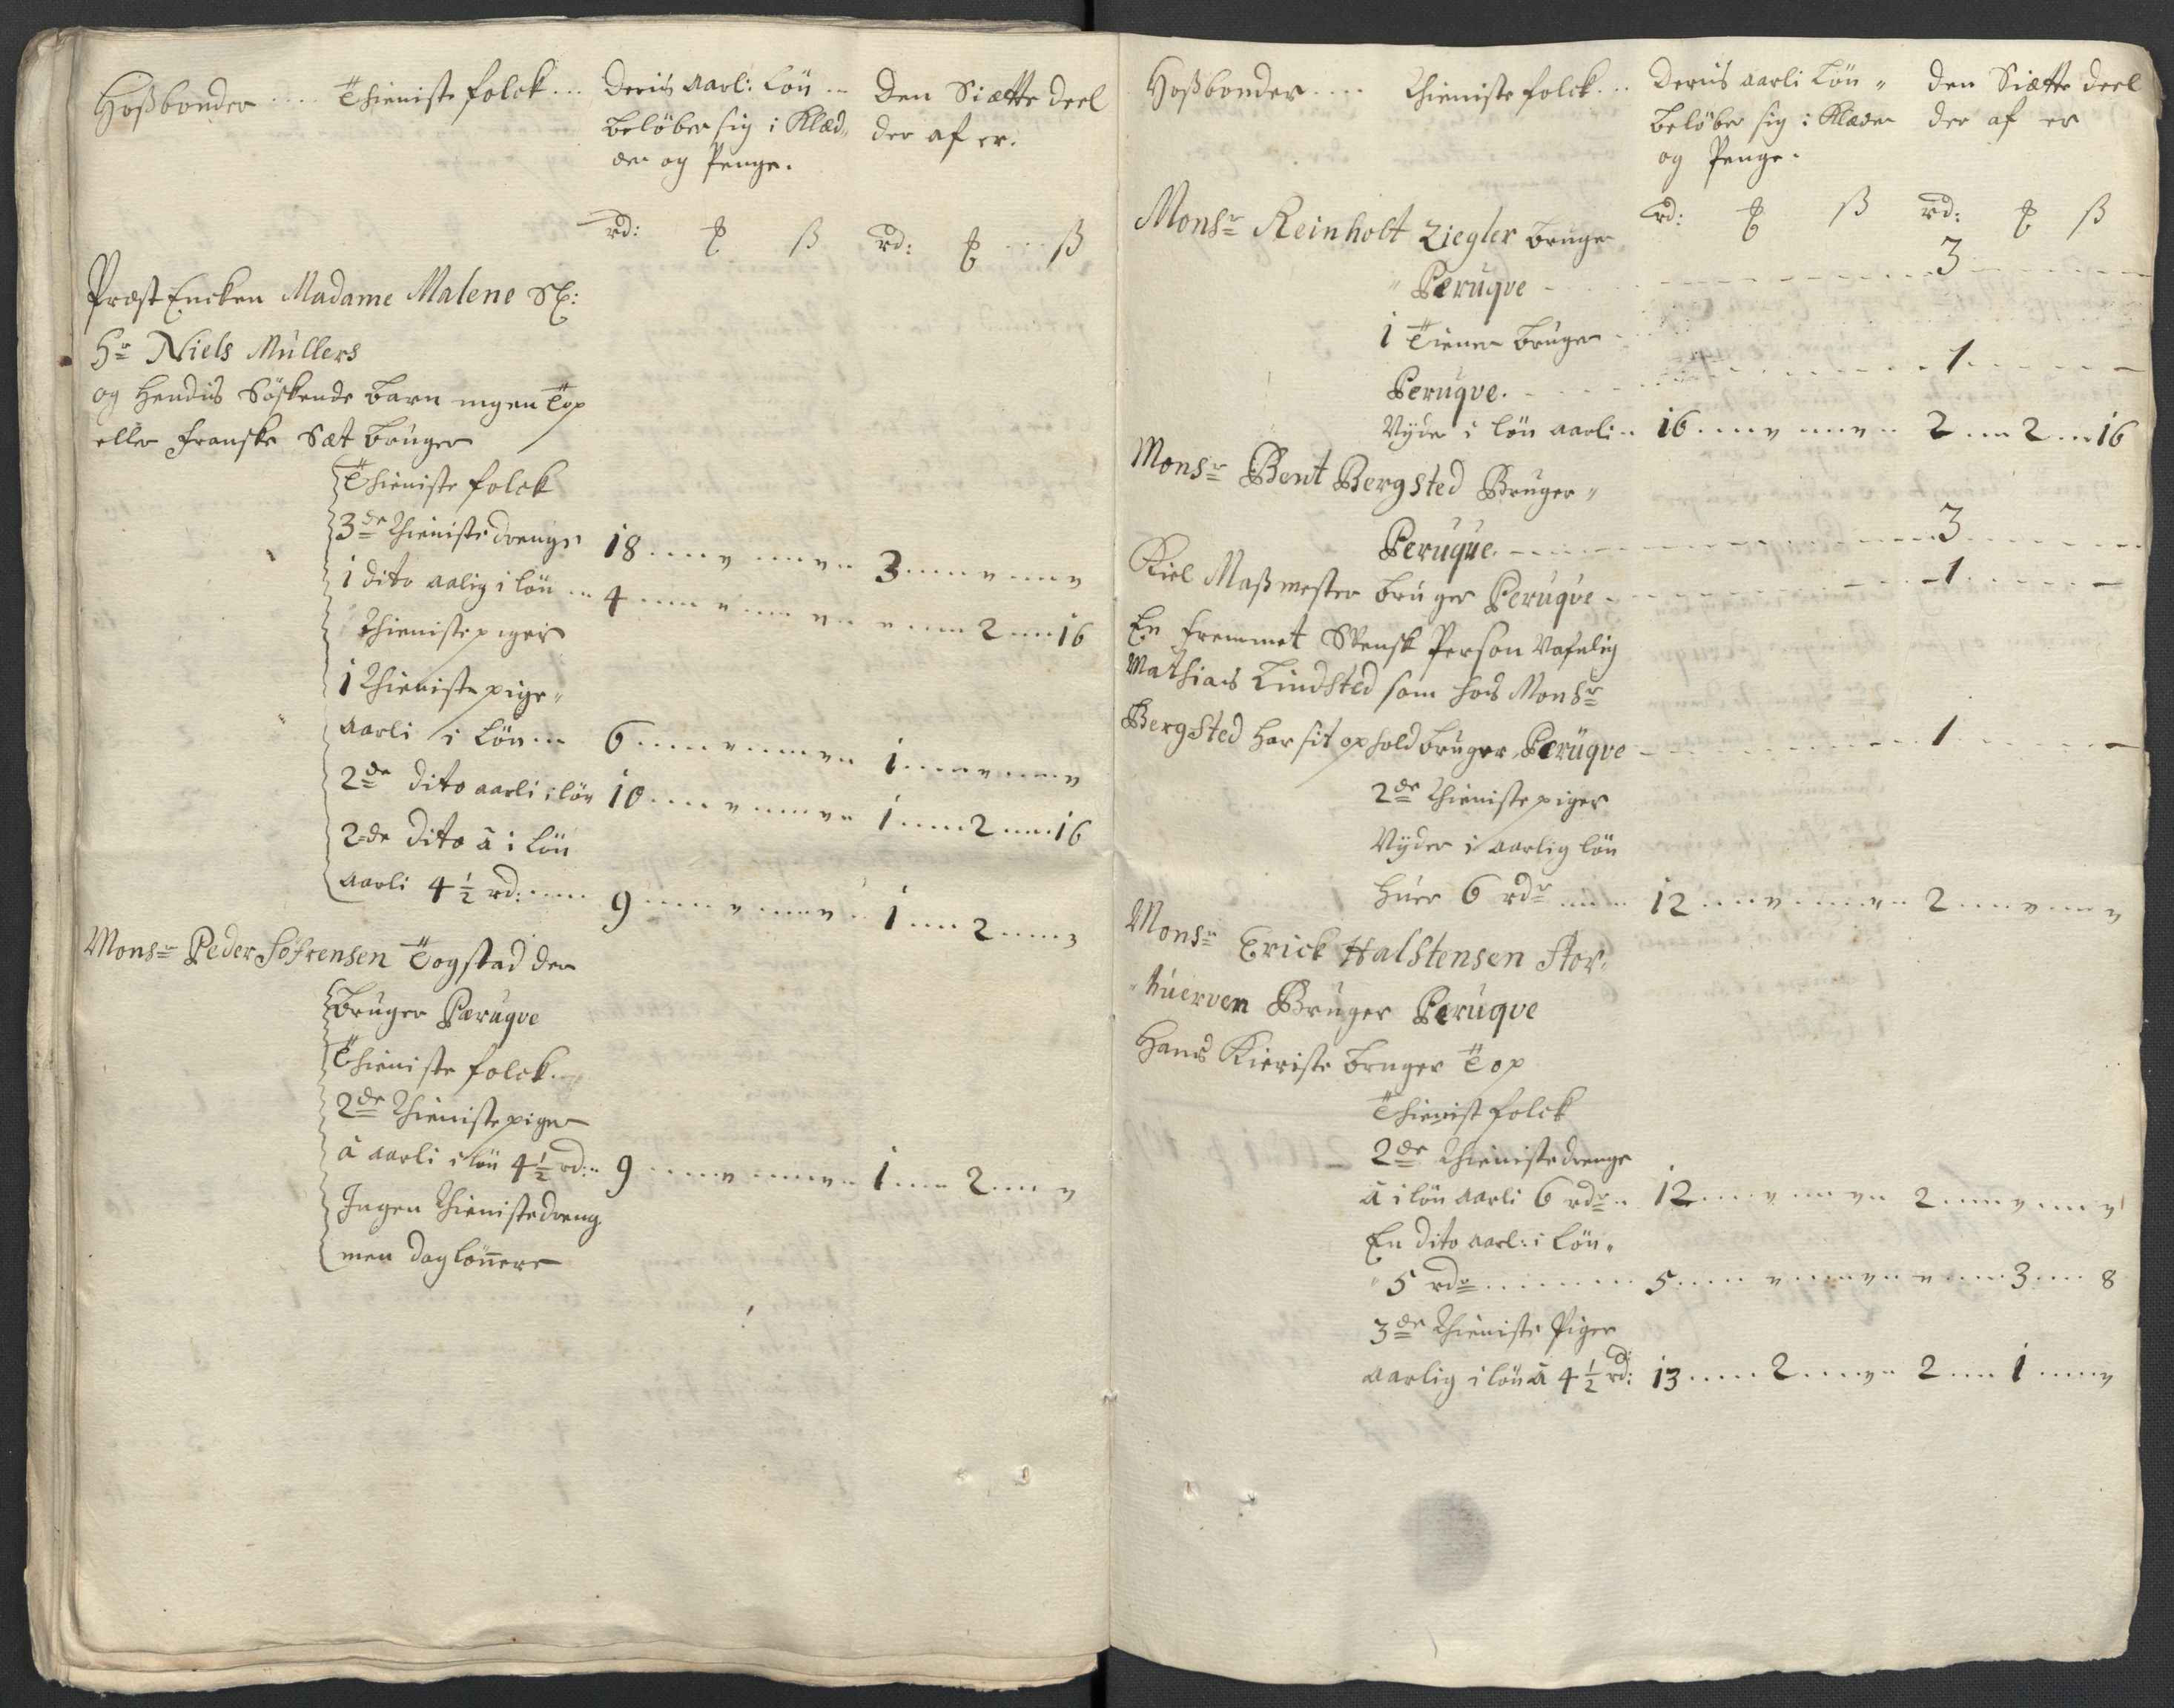 Hoßbonder .... Thieniste folck ... Deris aarl: Lön ... Den Siætte deel
beløber sig i Klæd- der af er.
er og Penge.
rd: ß rd: ß
Præst Encken Madame Malene Sl:
Hr Niels Müllers
og hendis Söskende barn ingen Top
eller franske Sæt bruger
Thieniste folck
3de Thieniste drenge 18 .... 3 ....
1 dito aalig i lön ... 4 .... 2 ... 16
Thieniste piger
1 Thieniste pige
aarli i Lön ... 6 .... 1 ....
2de dito aarli i lön 10 .... 1 .... 2 .... 16
2de dito â i Lön
aarli 4 1/2 rd: .... 9 .... 1 .... 2 ....
Monsr Peder Søfrensen Togstad der
bruger Pæruqve
Thieniste folck
2de Thieniste piger
â aarli i lön 4 1/2 rd: 9 .... 1 .... 2 ....
Ingen Thieniste dreng
men daglönnere
Hoßbonder .... Thieniste folck ... Deris aarli Lön den Siætte deel
beløber sig i Klæder der af er
og Penge.
rd: ß rd: ß
Monsr Reinholt Ziegler bruger
Peruqve 3
1 Tiener bruger
Peruqve. 1
Nyder i lön aarli 16 .... 2 ... 2 ... 16
Monsr Bent Bergsted Bruger
Peruque. 3
Kiel Maßmester bruger Peruqve 1
En fremmet Svensk Person Nafnlig
Mathias Lindsted som hos Monsr
Bergsted har sit ophold bruger Perüqve 1
2de Thieniste piger
Nyder i aarlig lön
huer 6 rdr 12 .... 2 ....
Monsr Erick Halstensen Stor-
huerven Bruger Peruqve
Hans Kieriste bruger Top
Thienist folck
2de Thieniste drenge
â i lön aarli 6 rdr 12 .... 2 ....
En dito aarl: i Lön
5 rdr .... 5 .... 3 ... 8
3de Thieniste Piger
aarlig i lön â 4 1/2 rd: 13 .... 2 .... 2 .... 1 ....